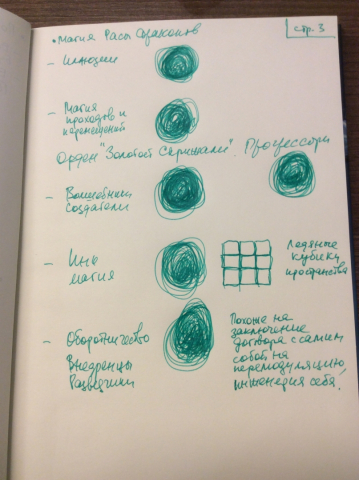 • Магия Расы Драконов
стр. 3
– Иллюзии
– Магия
проходов и
перемещений
Орден "Золотой Скрижали". Процессоры
– Волшебники
создатели
– Инь
магия
Ледяные
кубики
пространства
– Оборотничество
Внедренцы
Разведчики
Похоже на
заключение
договора с самим
собой на
перемодуляцию
инженерия себя!